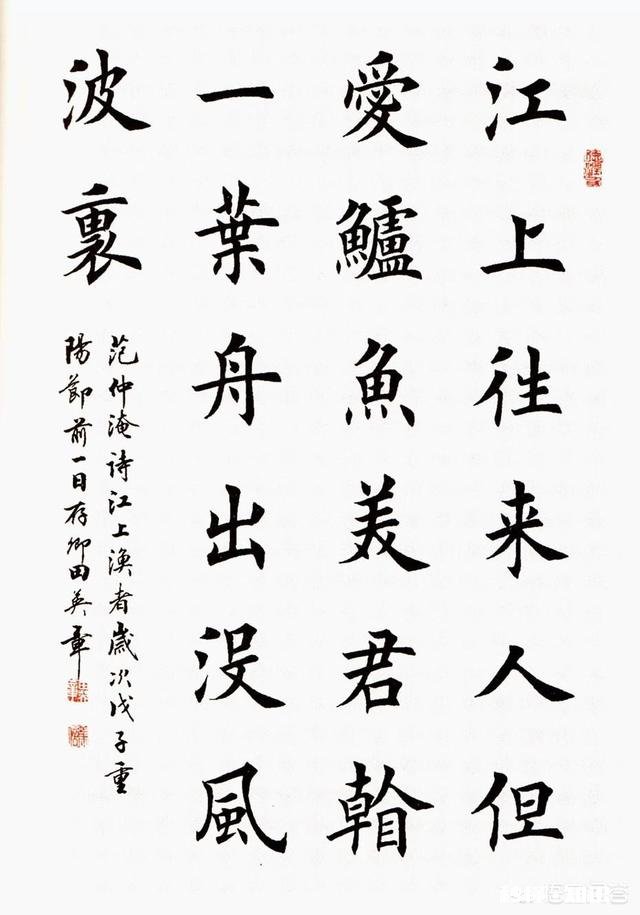 江上往来人但
愛鱸魚美君䀍
一葉舟出没風
波裏
范仲淹诗江上渔者歲次戊子重
陽節前一日存卿田英章